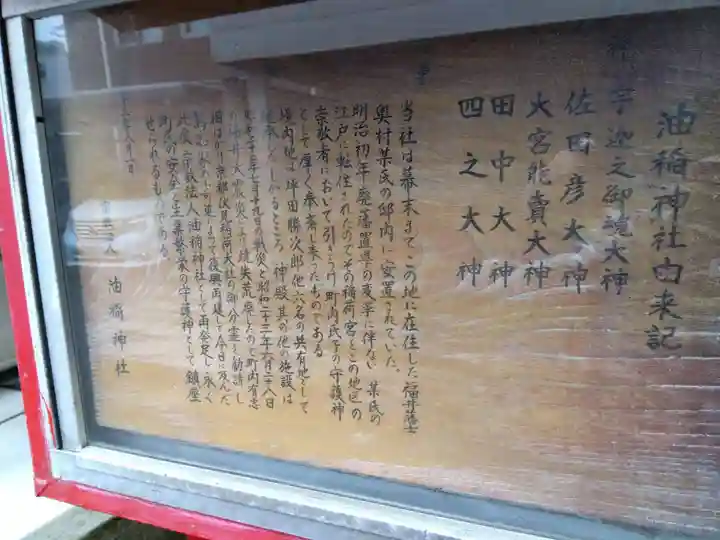 油稲神社由来記
宇迦之御魂大神
佐田彦大神
大宮能賣大神
田中大神
四之大神
当社は幕末までこの地に在住した福井藩士
奥村某氏の邸内に安置されていた。
明治初年廃藩置県の変革に伴ない某氏の
江戸に転住されたのでその稲荷宮をこの地区の
崇敬者において引きうけ町内氏子の守護神
として厚く奉斎し来ったものである
境内地は坪田勝次郎他六名の共有地として
しかるところ神殿其の他の施設は
昭和二十年七月十九日の戦災と昭和二十三年六月二十八日
の福井大震災により焼失荒廃したので町内有志
相はかり京都伏見稲荷大社の御分霊を勧請し
復興再建して今日に及んだ
此度宗教法人油稲神社として再発足し永く
町内の安全と生業繁栄の守護神として鎮座
せられるものである。
油稲神社